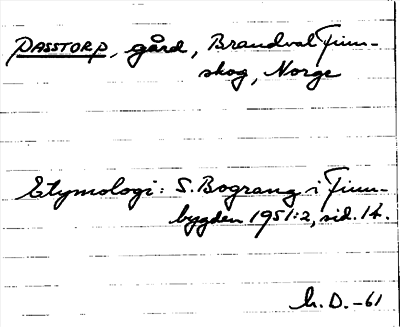 PASSTORP, gård, Brandval Finn-
skog, Norge
Etymologi: S. Bograng i Finn-
bygden 1951:2, sid. 14.
h. D. -61